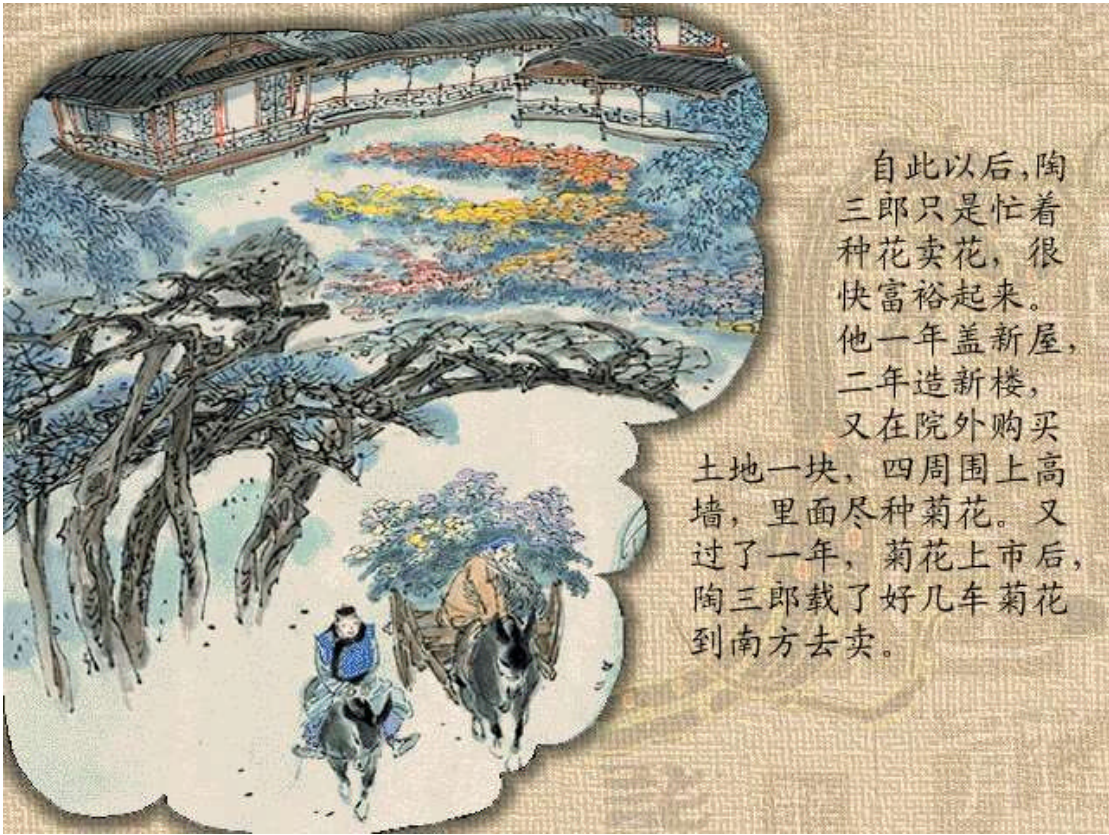 自此以后，陶
三郎只是忙着
种花卖花，很
快富裕起来。
他一年盖新屋，
二年造新楼，
又在院外购买
土地一块，四周围上高
墙，里面尽种菊花。又
过了一年，菊花上市后，
陶三郎载了好几车菊花
到南方去卖。